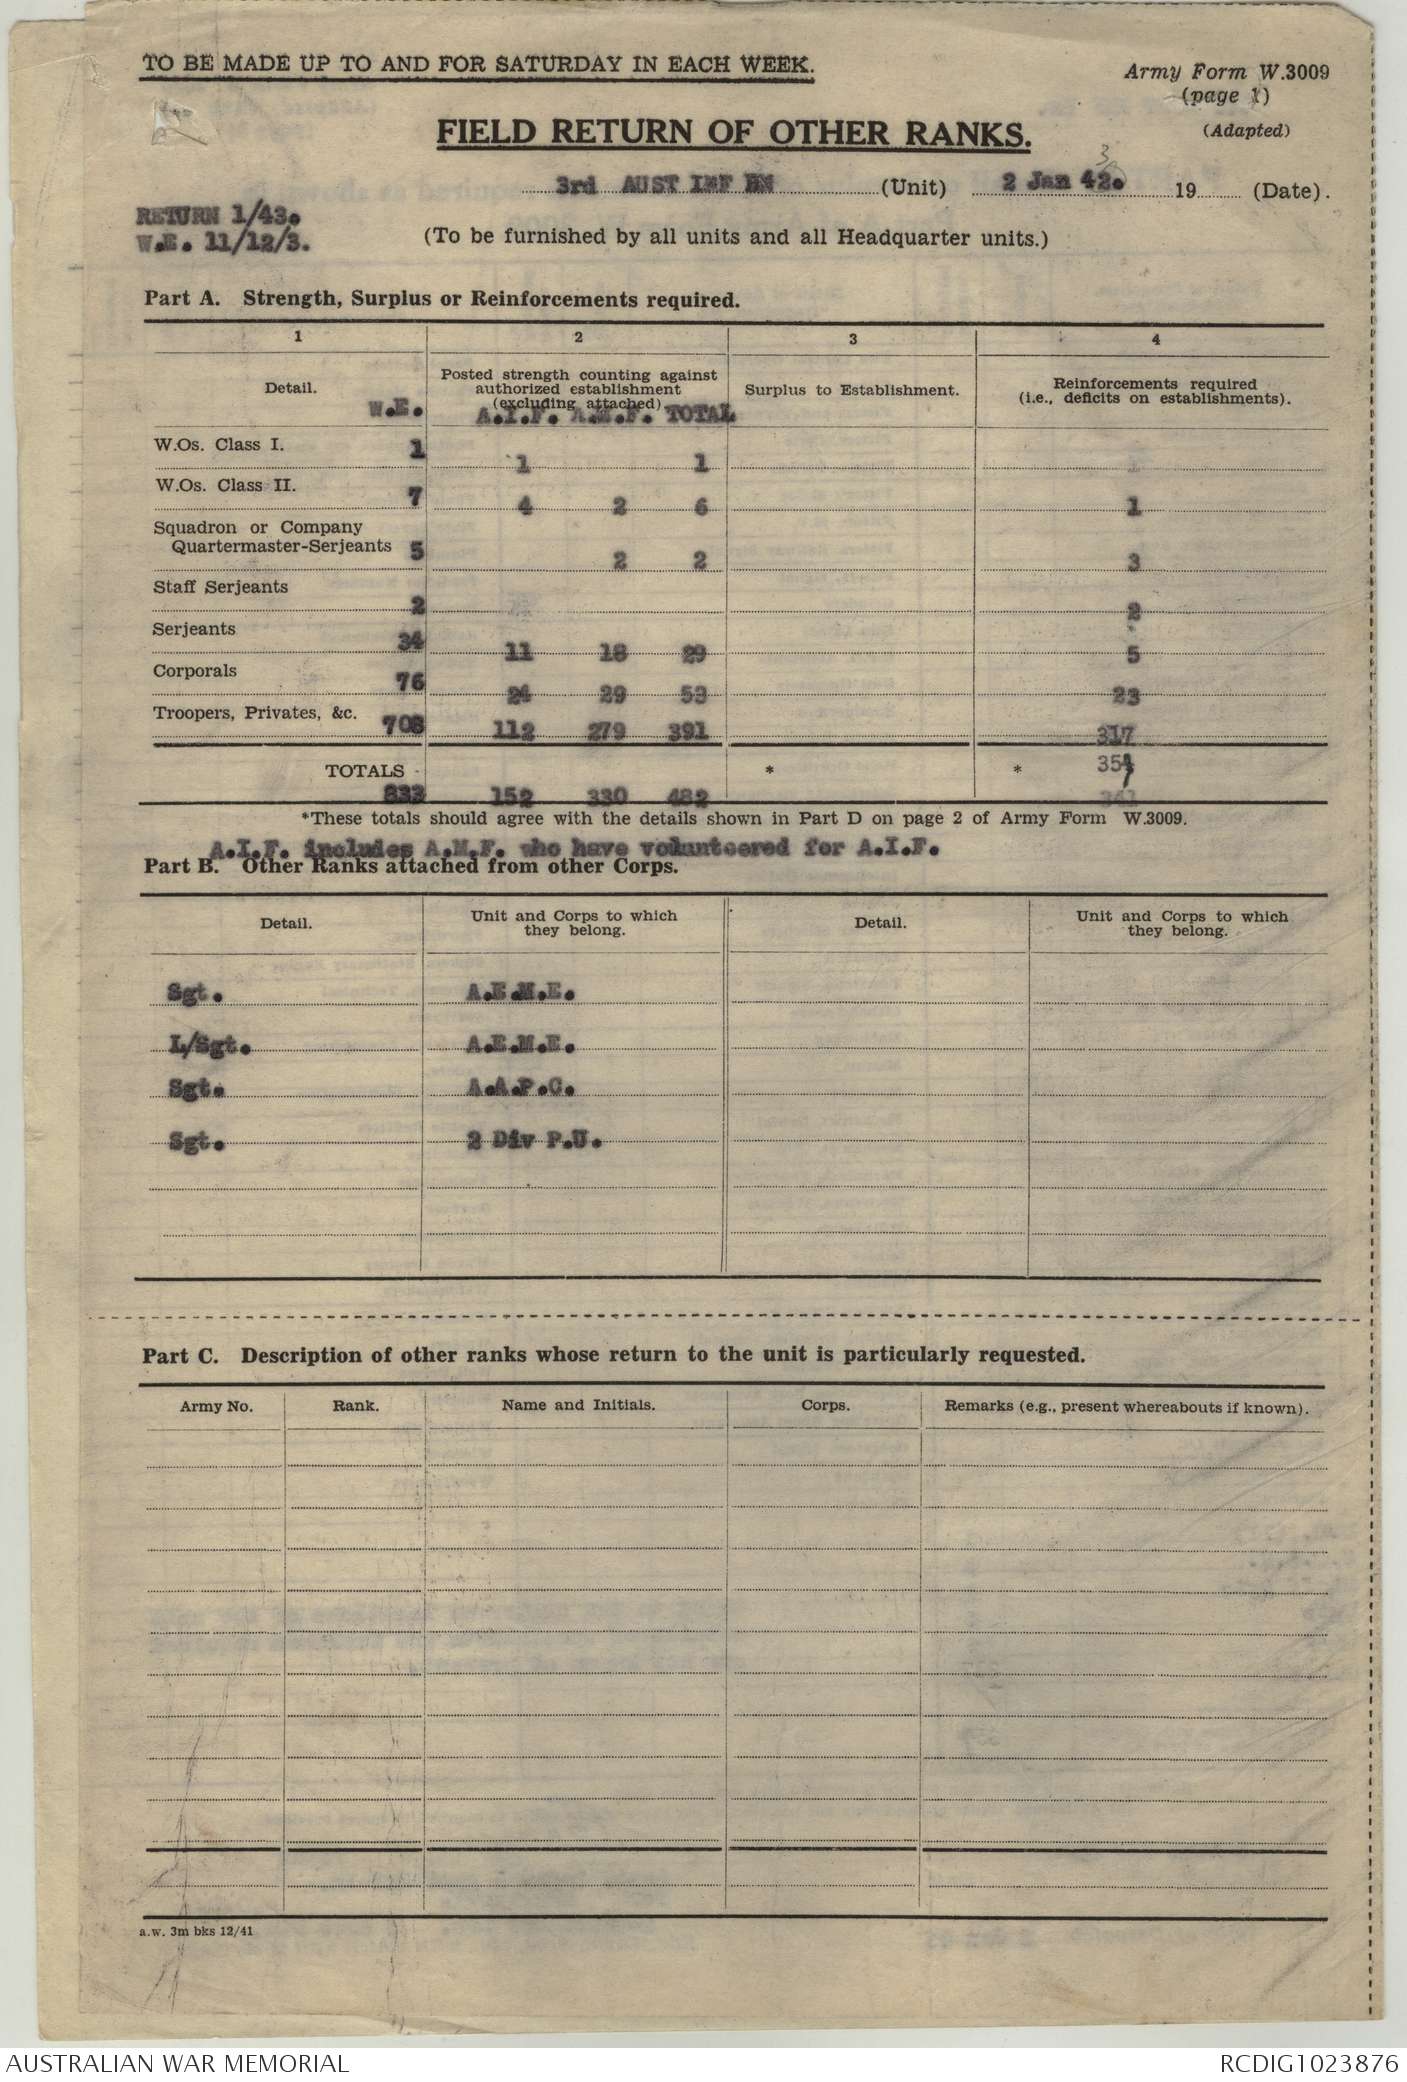 TO BE MADE UP TO AND FOR SATURDAY IN EACH WEEK.
Army Form W.3009
(page 1)
(Adapted)
FIELD RETURN OF OTHER RANKS.
3rd AUST INF BN (Unit) 2 Jan 42. 3 19 (Date).
RETURN 1/43.
W.E. 11/12/3.
(To be furnished by all units and all Headquarter units.)
Part A. Strength, Surplus or Reinforcements required.
1 2 3 4
Detail. W.E.
Posted strength counting against
authorized establishment
(excluding attached)
A.I.F. A.M.F. TOTAL
Surplus to Establishment.
Reinforcements required
(i.e., deficits on establishments).
W.Os. Class I. 1 1 1
W.Os. Class II. 7 4 2 6 1
Squadron or Company
Quartermaster-Serjeants 5 2 2 3
Staff Serjeants 2 2
Serjeants 34 11 18 29 5
Corporals 76 24 29 53 23
Troopers, Privates, &c. 708 112 279 391 317
TOTALS 833 152 330 482 * * 351
341
*These totals should agree with the details shown in Part D on page 2 of Army Form W.3009.
A.I.F. includes A.M.F. who have volunteered for A.I.F.
Part B. Other Ranks attached from other Corps.
Detail. Unit and Corps to which
they belong. Detail. Unit and Corps to which
they belong.
Sgt. A.E.M.E.
L/Sgt. A.E.M.E.
Sgt. A.A.P.C.
Sgt. 2 Div P.U.
Part C. Description of other ranks whose return to the unit is particularly requested.
Army No. Rank. Name and Initials. Corps. Remarks (e.g., present whereabouts if known).
a.w. 3m bks 12/41
AUSTRALIAN WAR MEMORIAL RCDIG1023876